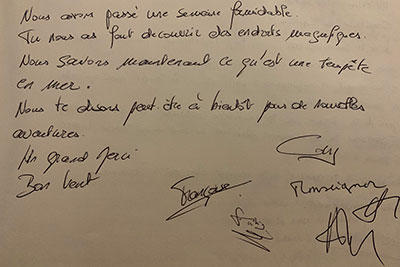 Nous avons passé une semaine formidable.
Tu nous as fait découvrir des endroits magnifiques.
Nous savons maintenant ce qu'est une tempête
en mer.
Nous te disons peut être à bientôt pour de nouvelles
aventures.
Un grand merci
Bon vent
Françoise
Monseigneur